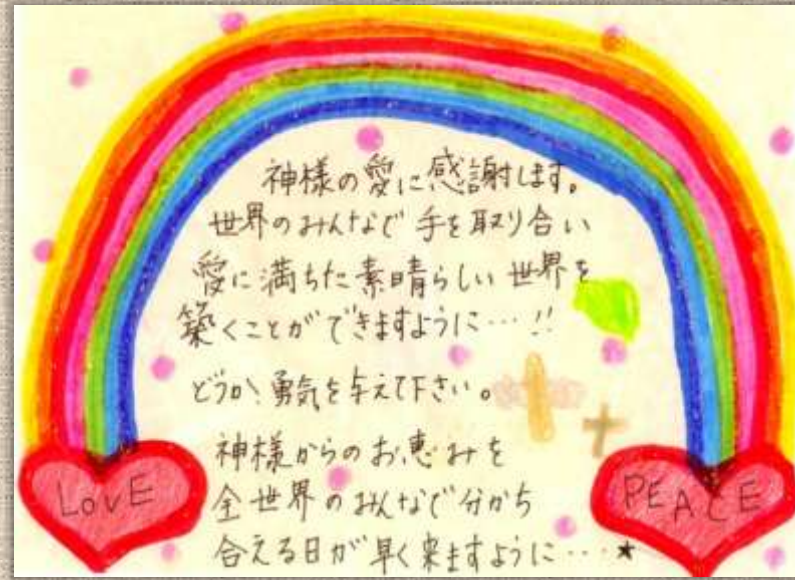 神様の愛に感謝します。
世界のみんなで手を取り合い
愛に満ちた素晴らしい世界を
築くことができますように…!!
どうか、勇気を与えて下さい。
神様からのお恵みを
全世界のみんなで分かち
合える日が早く来ますように…★
LOVE
PEACE